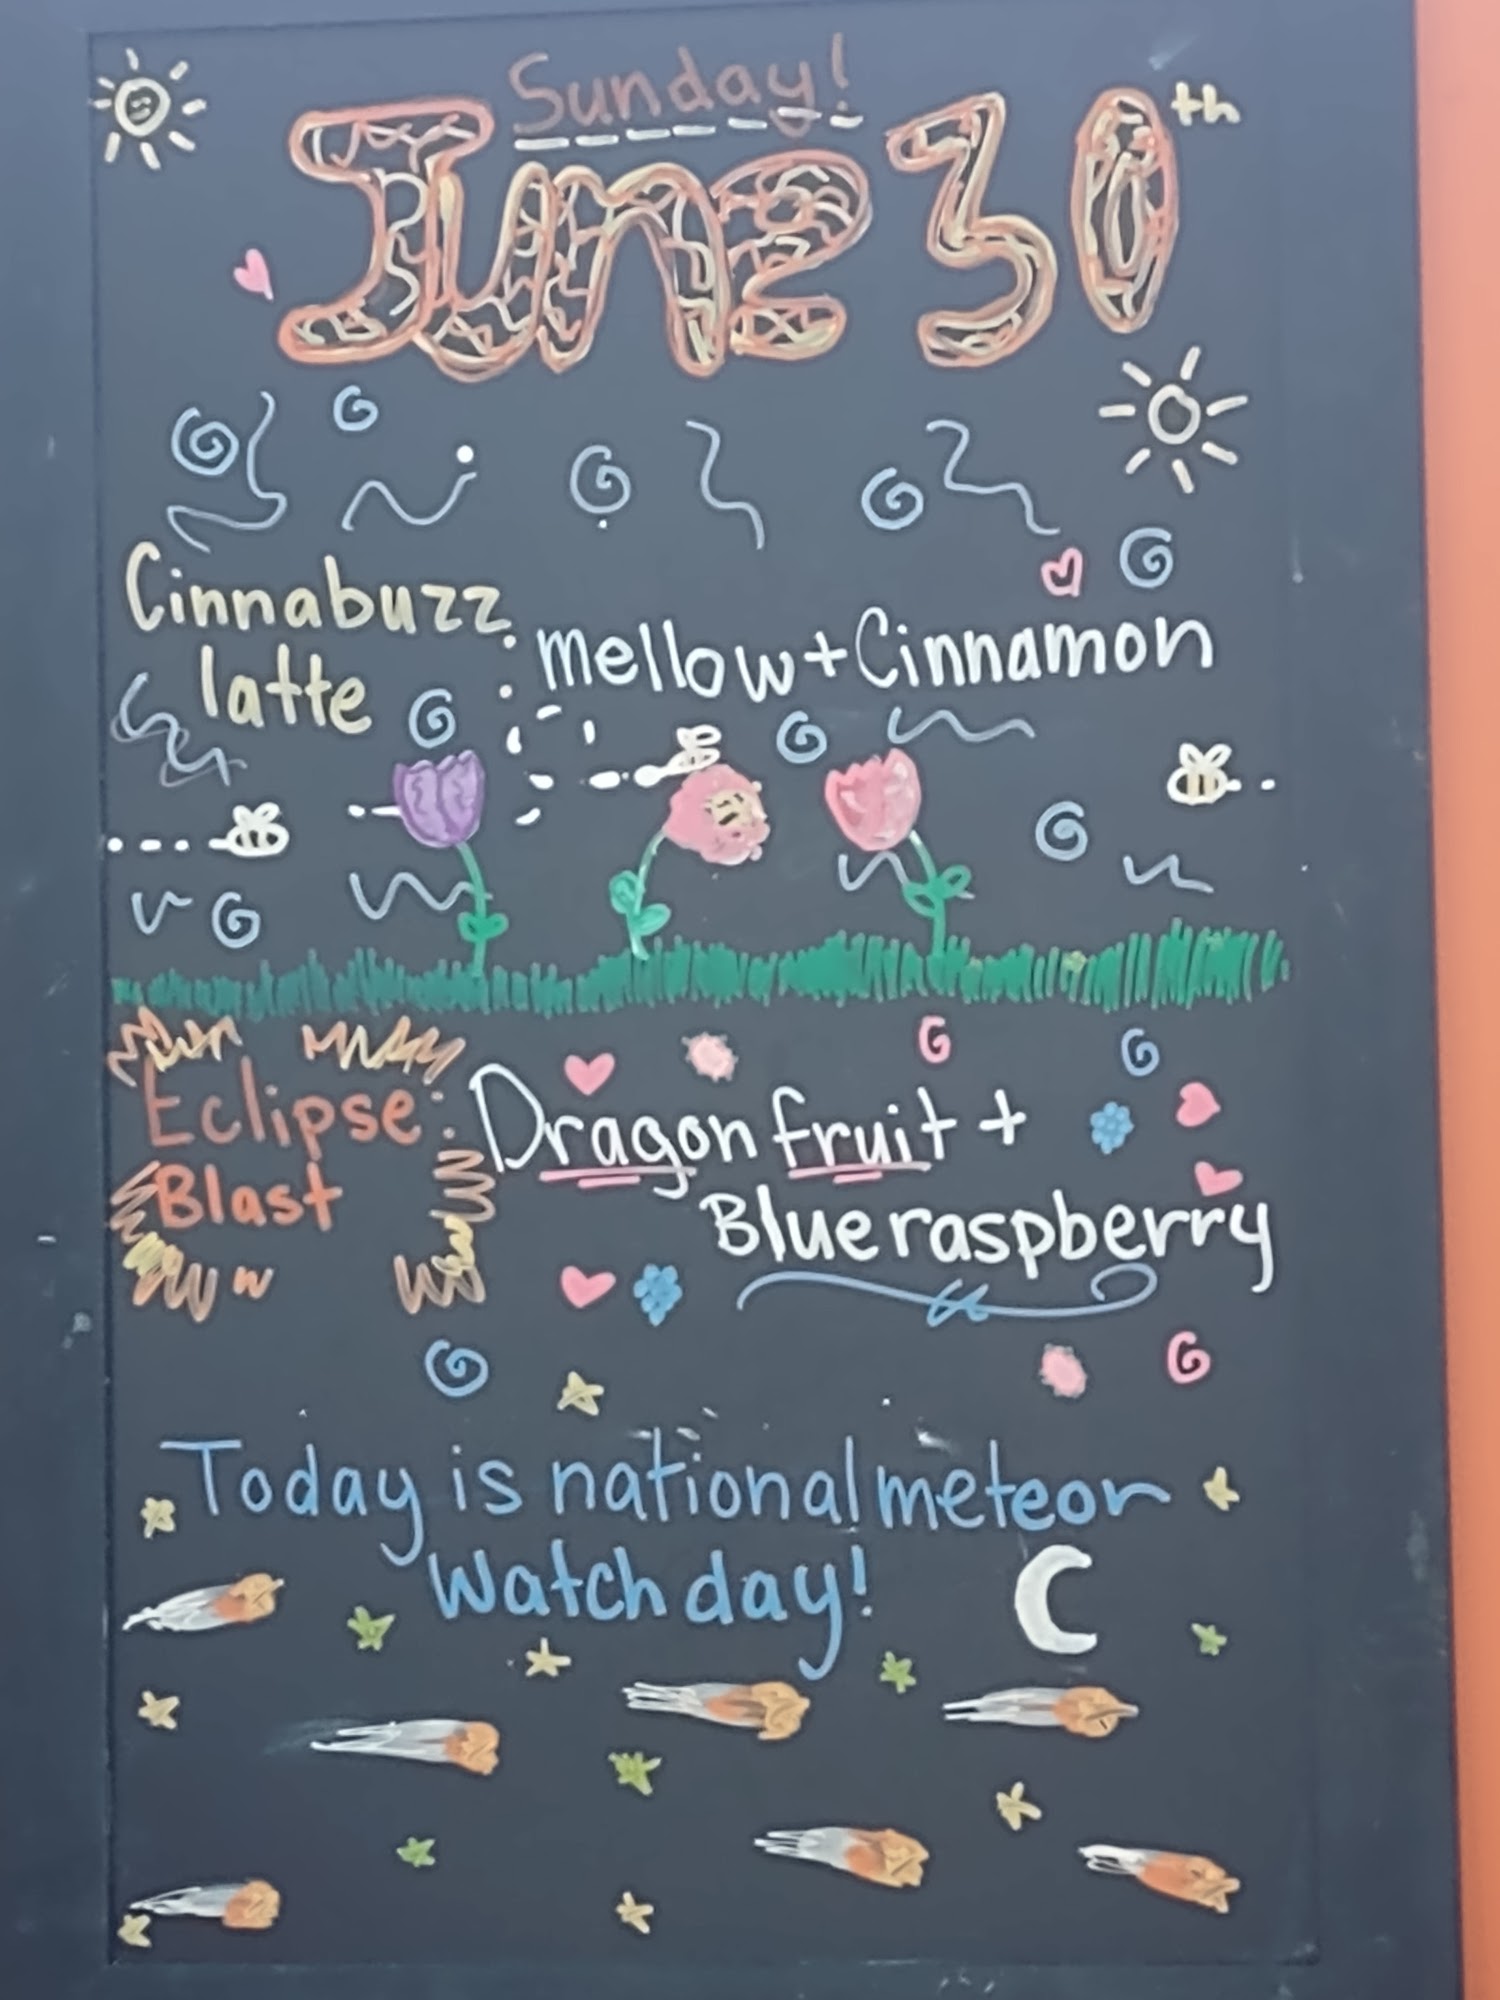 Sunday!
June 30th
Cinnabuzz
latte : mellow + Cinnamon
Eclipse : Dragon fruit +
Blast
Blue raspberry
Today is national meteor
Watch day!